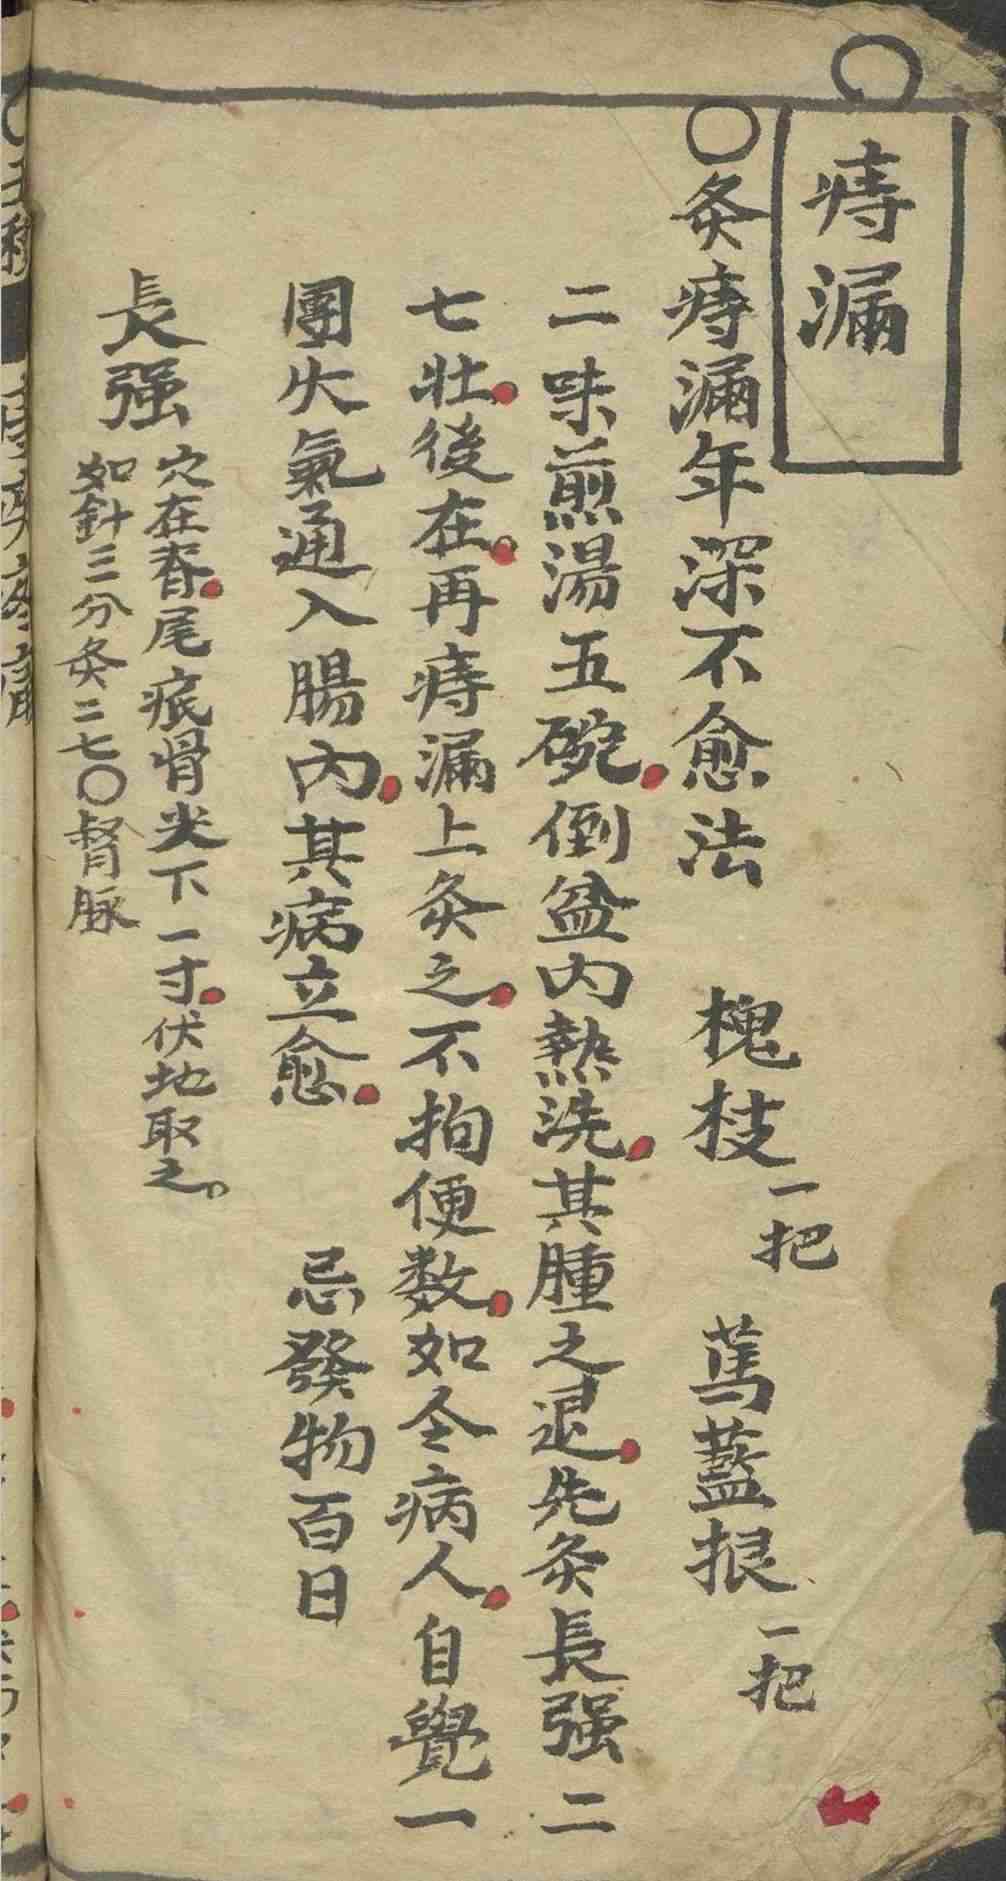 痔漏
〇灸痔漏年深不愈法　槐枝一把　蔿藍根一把
二味煎湯五碗倒盆内熱洗其腫之退先灸長强二
七壯後在再痔漏上灸之不拘便数如令病人自覺一
團火氣通入腸内其病立愈　忌發物百日
長强
穴在脊尾疷骨尖下一寸伏地取之
如針三分灸二七〇督脉